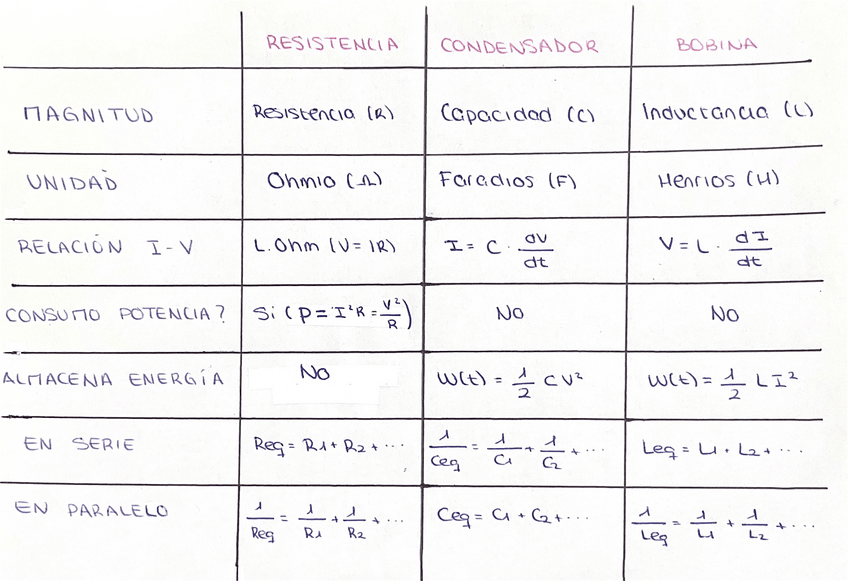 RESISTENCIA CONDENSADOR BOBINA
MAGNITUD Resistencia (R) Capacidad (C) Inductancia (L)
UNIDAD Ohmio (Ω) Faradios (F) Henrios (H)
RELACIÓN I-V L.Ohm (V=IR) I = C · dV/dt V = L · dI/dt
CONSUMO POTENCIA? Sí (P = I²R = V²/R) NO NO
ALMACENA ENERGÍA NO W(t) = 1/2 CV² W(t) = 1/2 LI²
EN SERIE Req = R1 + R2 + ... 1/Ceq = 1/C1 + 1/C2 + ... Leq = L1 + L2 + ...
EN PARALELO 1/Req = 1/R1 + 1/R2 + ... Ceq = C1 + C2 + ... 1/Leq = 1/L1 + 1/L2 + ...